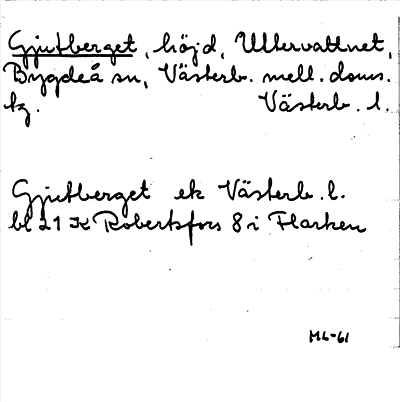 Gjutberget, höjd, Ultervattnet,
Bygdeå sn, Västerb. mell. doms.
tg. Västerb. l.
Gjutberget ek Västerb. l.
bl 21 K Robertsfors 8 i Flarken
ML-61